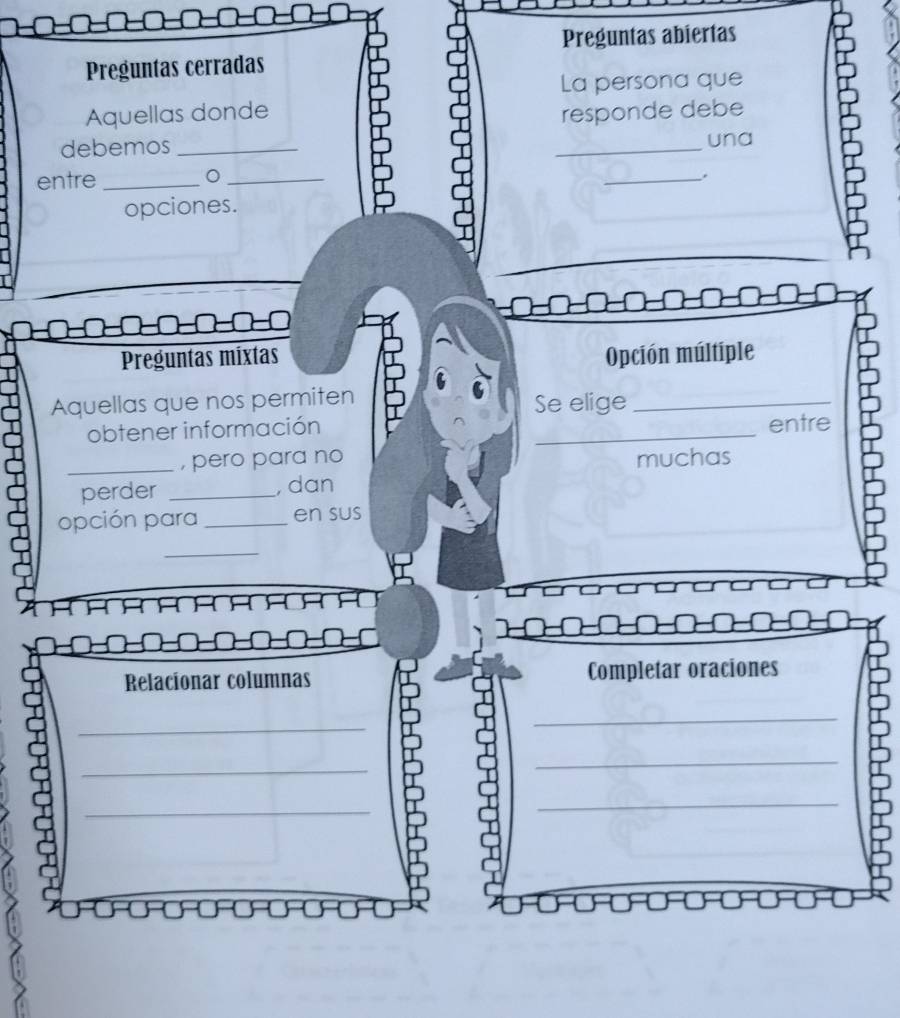 Preguntas cerradas
Aquellas donde
debemos ____________
entre __________ o __________
opciones.
Preguntas abiertas
La persona que
responde debe
_______________ una
__________.
Preguntas mixtas
Aquellas que nos permiten
obtener información
___________, pero para no
perder ___________, dan
opción para _________ en sus
__________
Opción múltiple
Se elige ____________________
_______________________ entre
muchas
Relacionar columnas
______________________________
______________________________
______________________________
Completar oraciones
______________________________
______________________________
______________________________